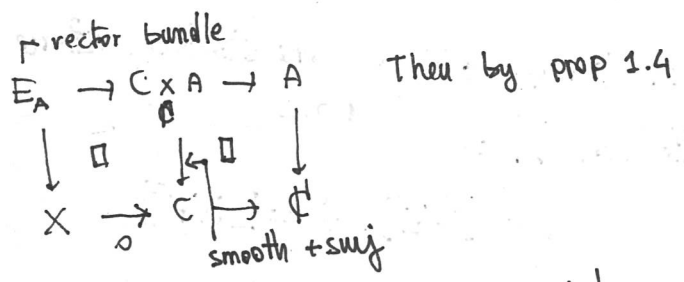 vector bundle
E_A → C × A → A
𝕮
Then by prop 1.4
□ □
X → C → 𝕮
0
smooth + surj